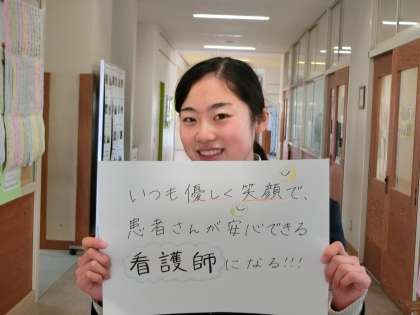 いつも優しく笑顔で、
患者さんが安心できる
看護師になる!!!